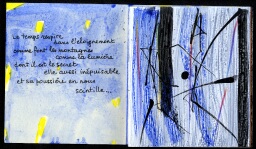 Le temps respire
dans l'éloignement
comme font les montagnes
comme la lumière
dont il est le secret
elle aussi inépuisable
et sa poussière en nous
scintille...